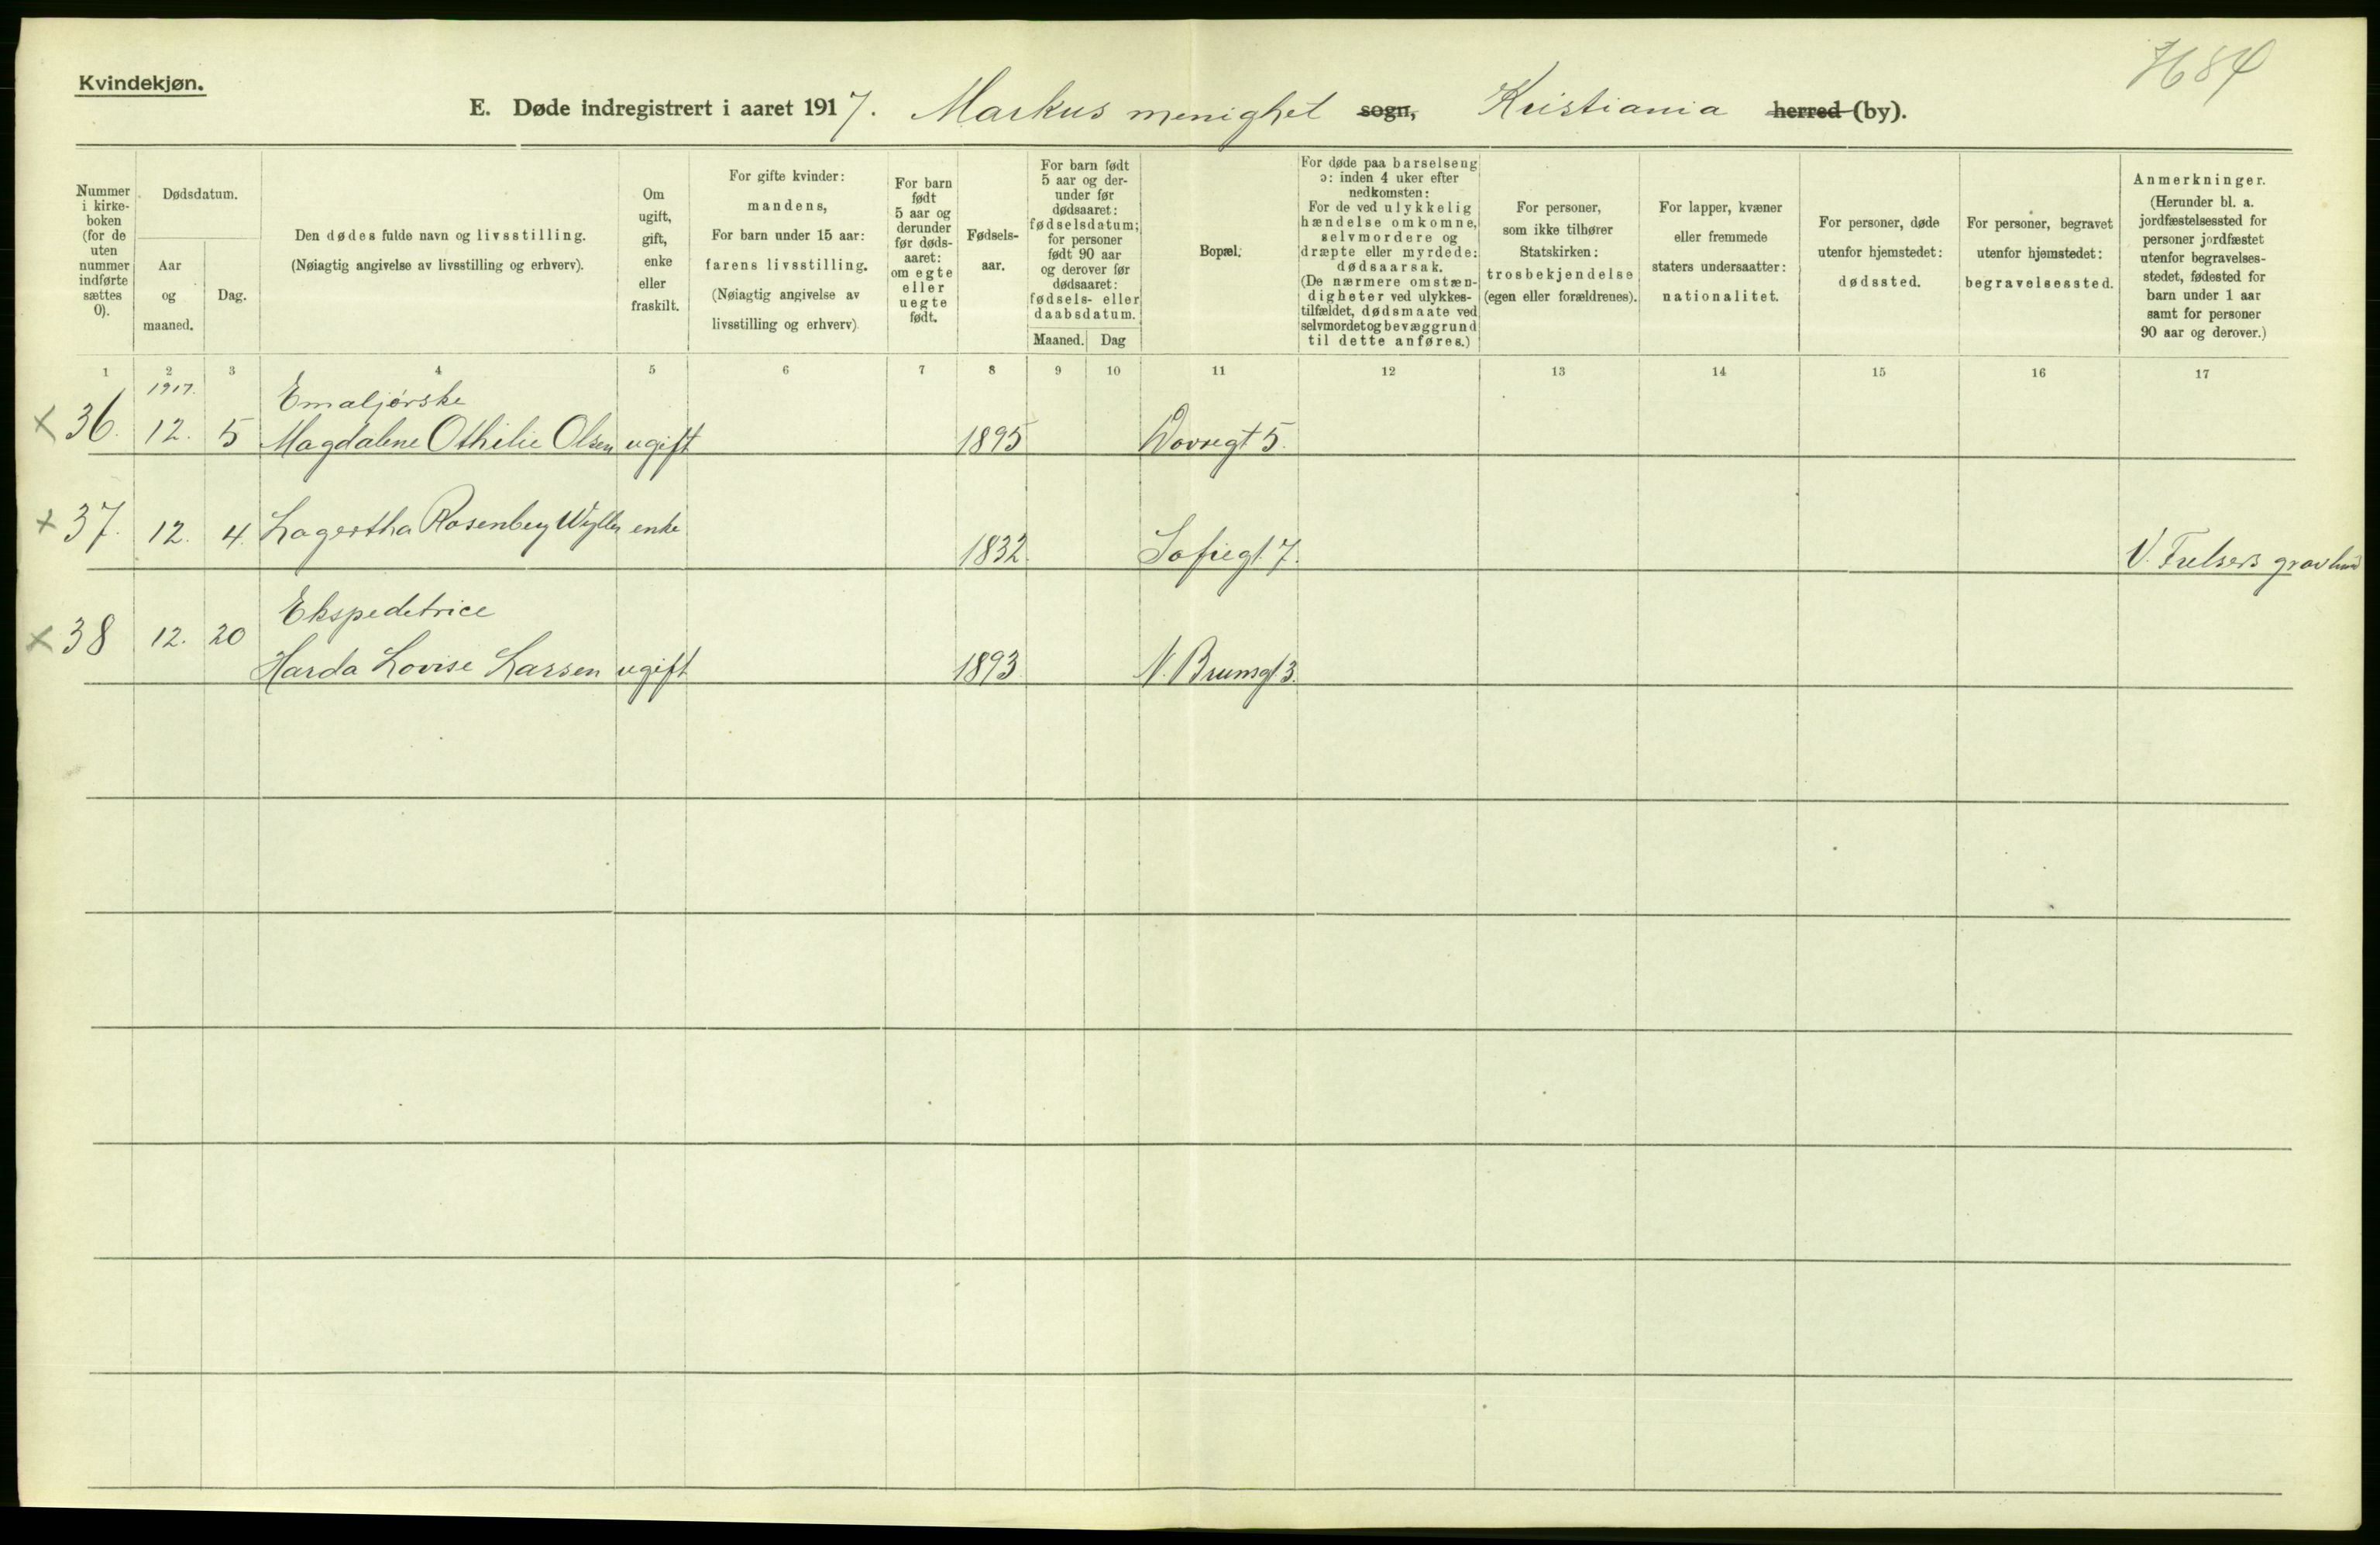 Kvindekjøn.
E. Døde indregistrert i aaret 1917. Markus menighet sogn, Kristiania herred (by).
Nummer i kirke-boken (for de uten nummer indførte sættes 0).
Dødsdatum.
Aar og maaned.
Dag.
Den dødes fulde navn og livsstilling.
(Nøiagtig angivelse av livsstilling og erhverv).
Om ugift, gift, enke eller fraskilt.
For gifte kvinder:
mandens,
For barn under 15 aar:
farens livsstilling.
(Nøiagtig angivelse av
livsstilling og erhverv)
For barn født 5 aar og derunder før døds-aaret: om egte eller uegte født.
Fødsels-aar.
For barn født
5 aar og der-
under før
dødsaaret:
fødselsdatum;
for personer
født 90 aar
og derover før
dødsaaret:
fødsels- eller
daabsdatum.
Maaned. Dag
Bopæl.
For døde paa barselseng
ɔ: inden 4 uker efter
nedkomsten:
For de ved ulykkelig
hændelse omkomne,
selvmordere og
dræpte eller myrdede:
dødsaarsak.
(De nærmere omstæn-
digheter ved ulykkes-
tilfældet, dødsmaate ved
selvmordet og bevæggrund
til dette anføres.)
For personer,
som ikke tilhører
Statskirken:
trosbekjendelse
(egen eller forældrenes).
For lapper, kvæner
eller fremmede
staters undersaatter:
nationalitet.
For personer, døde
utenfor hjemstedet:
dødssted.
For personer, begravet
utenfor hjemstedet:
begravelsessted.
Anmerkninger.
(Herunder bl. a.
jordfæstelsessted for
personer jordfæstet
utenfor begravelses-
stedet, fødested for
barn under 1 aar
samt for personer
90 aar og derover.)
1 2 3 4 5 6 7 8 9 10 11 12 13 14 15 16 17
1917. Emaljørske
x 36. 12. 5 Magdalene Othilie Olsen ugift 1895 Dovregt 5.
x 37. 12. 4. Lagertha Rosenberg Wyller enke 1832. Sofiegt. 7. V. Frelsers gravlund
Ekspedetrice
x 38 12. 20 Harda Lovise Larsen ugift 1893 N. Brunsgt 3.